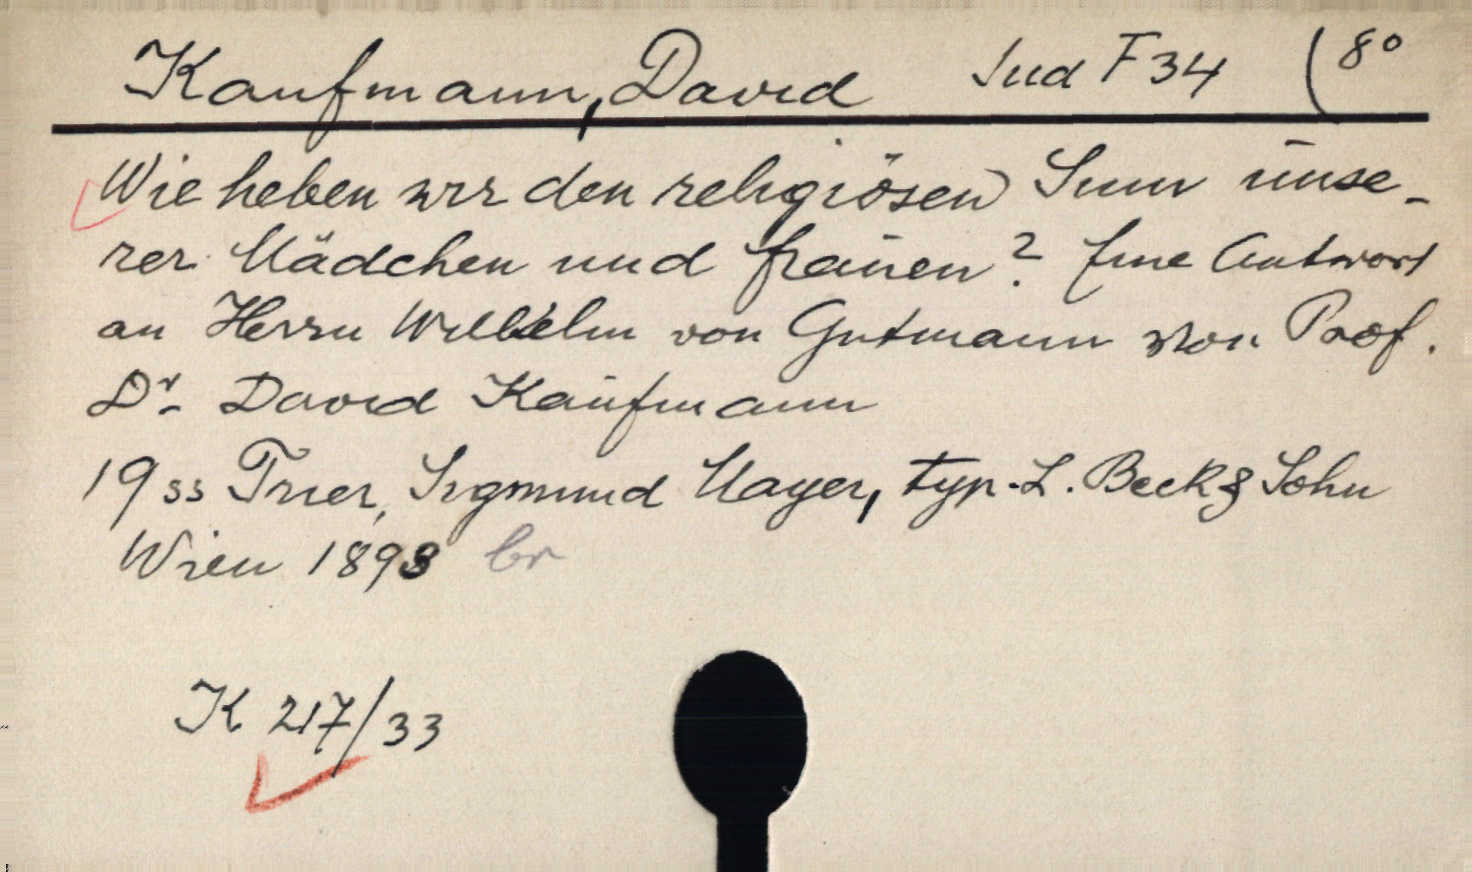 Kaufmann, David Jud F 34 (8°
Wie heben wir den religiösen Sinn unse-
rer Mädchen und Frauen? Eine Antwort
an Herrn Wilhelm von Gutmann von Prof.
Dr. David Kaufmann
19 ss Trier, Sigmund Mayer, typ. L. Beck & Sohn
Wien 1893 br
K 217/33